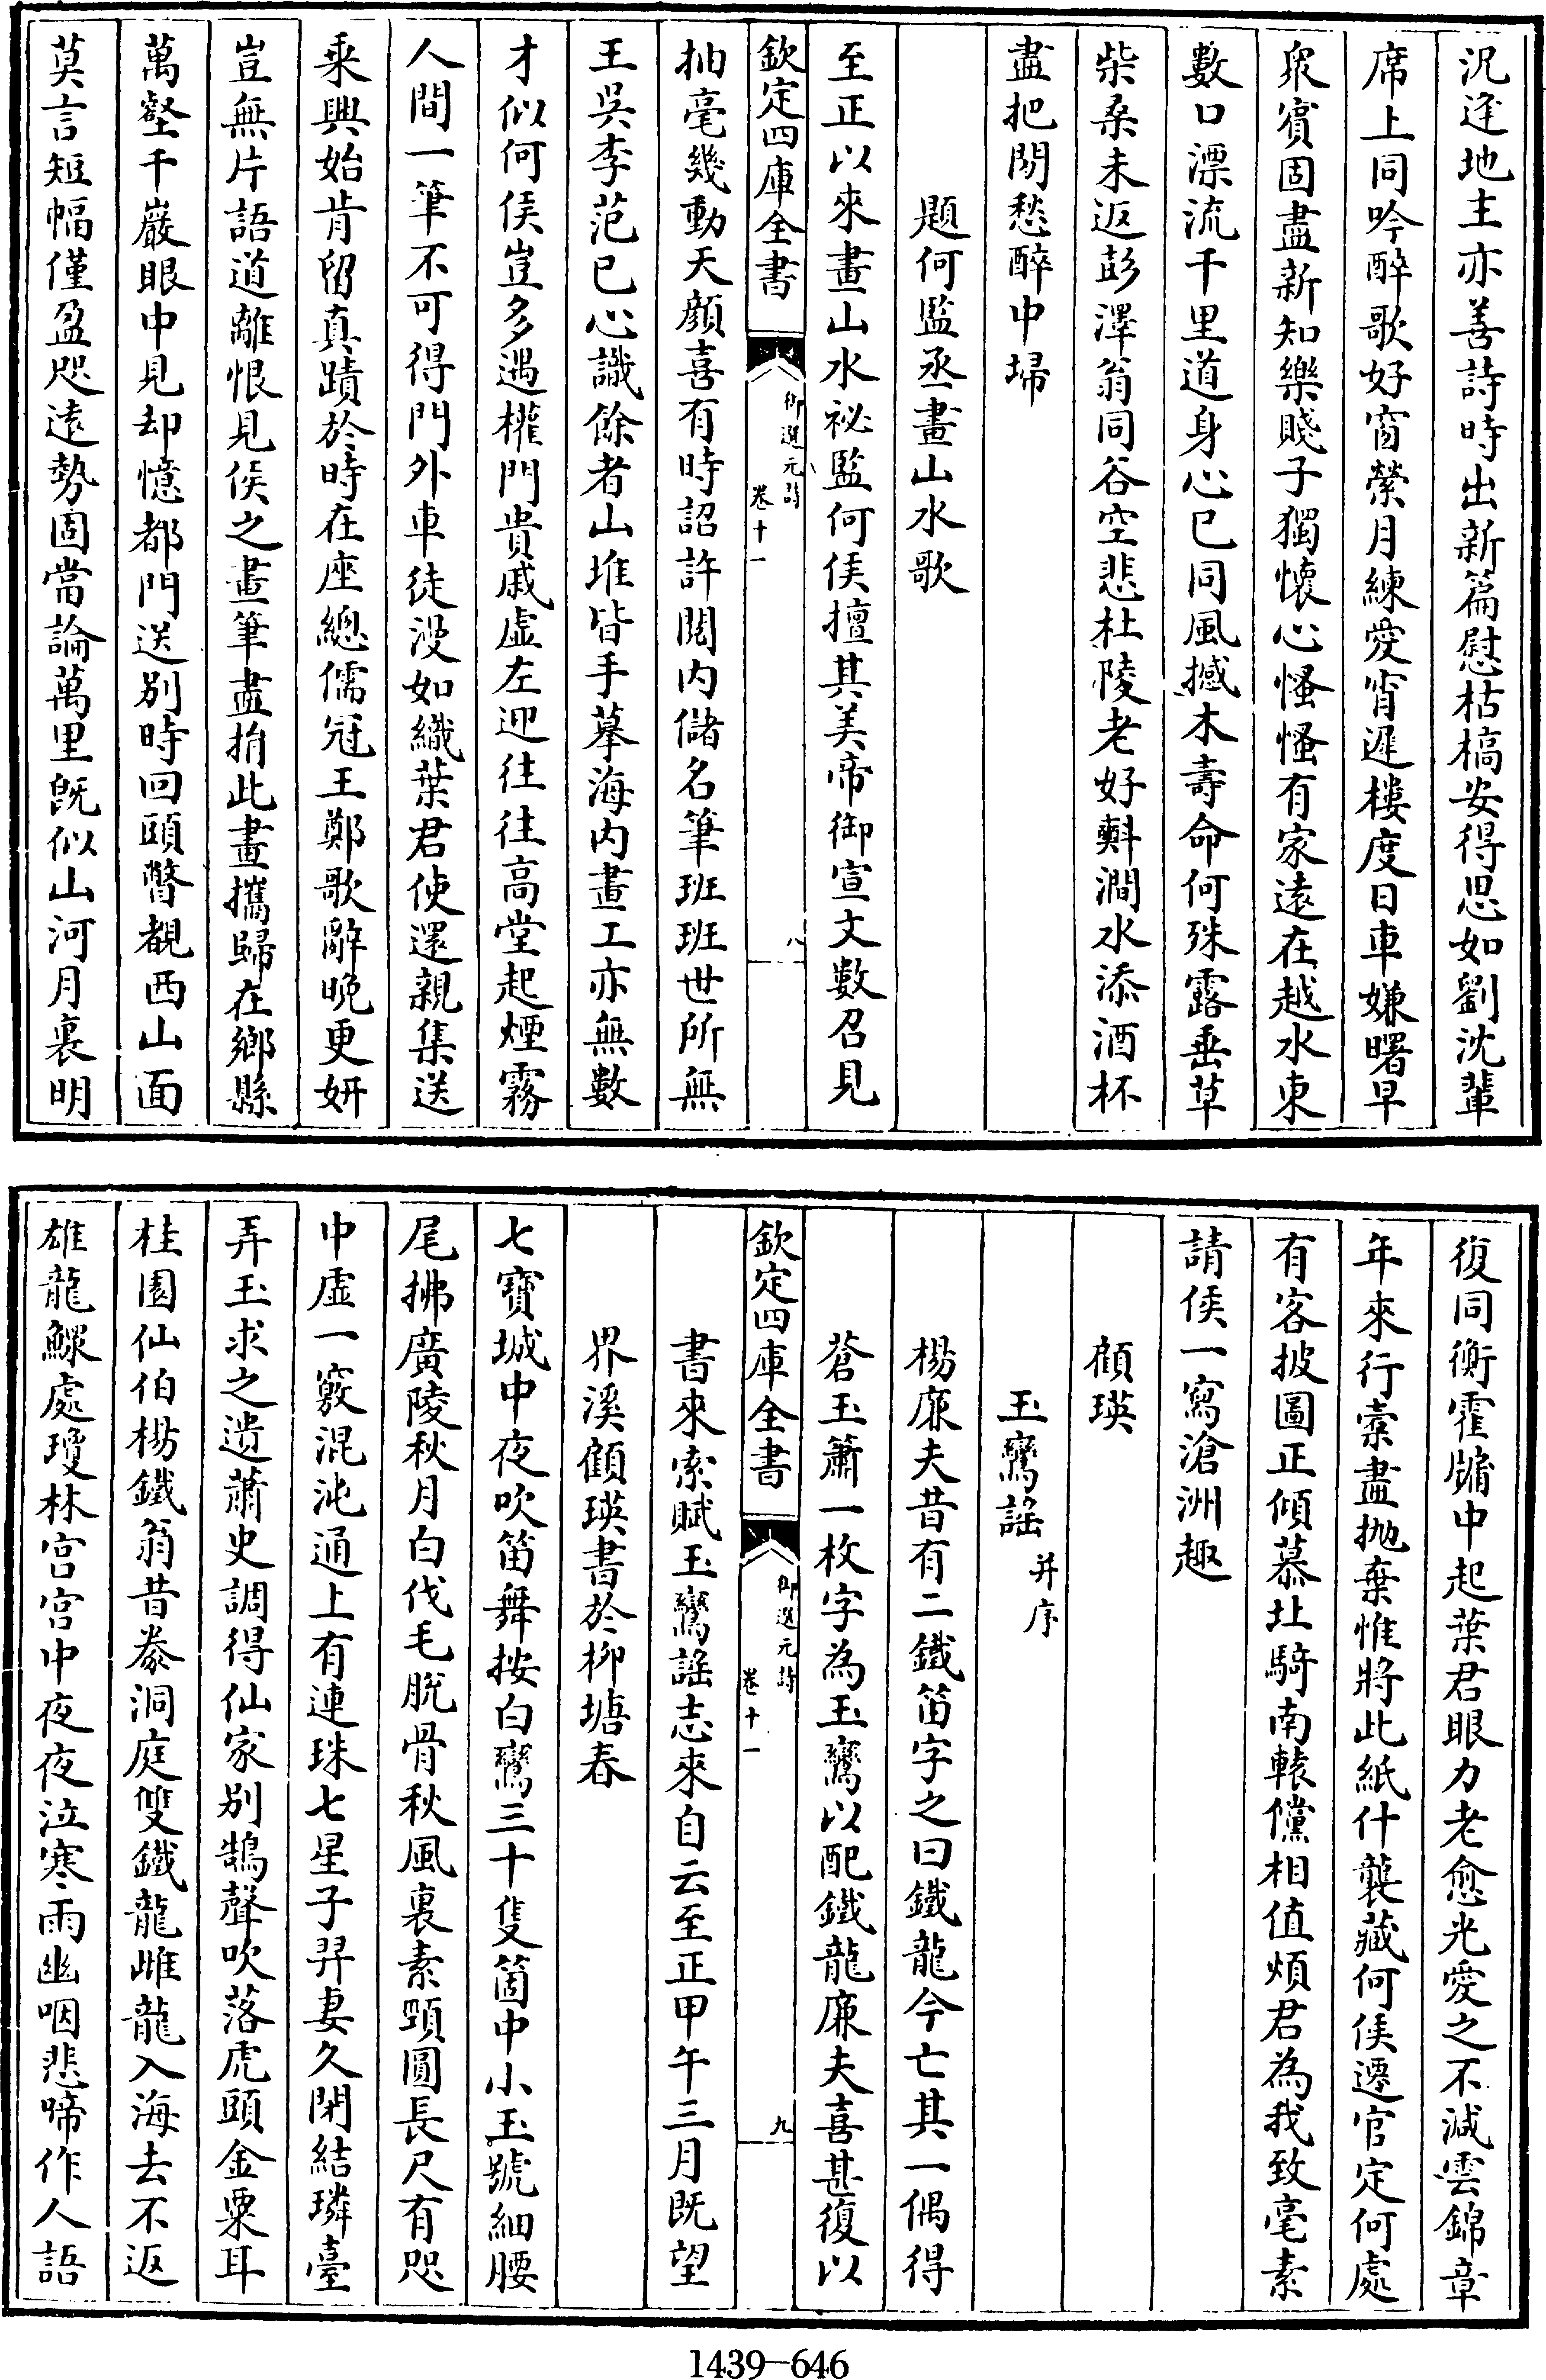 況逢地主亦善詩時出新篇慰枯槁安得思如劉沈輩
席上同吟醉歌好窗縈月練愛宵遲樓度日車嫌曙早
衆賓固盡新知樂賤子獨懷心慅慅有家遠在越水東
數口漂流千里道身心已同風撼木壽命何殊露垂草
柴桑未返彭澤翁同谷空悲杜陵老好斟澗水添酒杯
盡把閒愁醉中埽
題何監丞畫山水歌
至正以來畫山水祕監何侯擅其美帝御宣文數召見
欽定四庫全書
御選元詩
卷十一
八
抽毫幾動天顏喜有時詔許閱內儲名筆班班世所無
王吳李范已心識餘者山堆皆手摹海內畫工亦無數
才似何侯豈多遇權門貴戚虛左迎往往高堂起煙霧
人間一筆不可得門外車徒漫如織葉君使還親集送
乘興始肯留真蹟於時在座總儒冠王鄭歌辭晚更妍
豈無片語道離恨見侯之畫筆盡捐此畫攜歸在鄉縣
萬壑千巖眼中見却憶都門送別時回頭瞥覩西山面
莫言短幅僅盈咫遠勢固當論萬里旣似山河月裏明
復同衡霍牖中起葉君眼力老愈光愛之不減雲錦章
年來行橐盡抛棄惟將此紙什襲藏何侯遷官定何處
有客披圖正傾慕北騎南轅儻相值煩君為我致毫素
請侯一寫滄洲趣
顧瑛
玉鸞謠并序
楊廉夫昔有二鐵笛字之曰鐵龍今亡其一偶得
蒼玉簫一枚字為玉鸞以配鐵龍廉夫喜甚復以
欽定四庫全書
御選元詩
卷十一
九
書來索賦玉鸞謠志來自云至正甲午三月既望
界溪顧瑛書於柳塘春
七寶城中夜吹笛舞按白鸞三十隻箇中小玉號細腰
尾拂廣陵秋月白伐毛脫骨秋風裏素頸圓長尺有咫
中虛一竅混沌通上有連珠七星子羿妻久閉結璘臺
弄玉求之遺蕭史調得仙家別鵠聲吹落虎頭金粟耳
桂園仙伯楊鐵翁昔豢洞庭雙鐵龍雌龍入海去不返
雄龍鰥處瓊林宮宮中夜夜泣寒雨幽咽悲啼作人語
1439-646